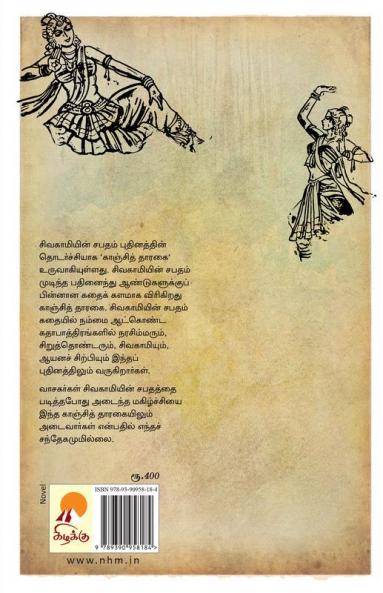 சிவகாமியின் சபதம் புதினத்தின்
தொடர்ச்சியாக 'காஞ்சித் தாரகை'
உருவாகியுள்ளது. சிவகாமியின் சபதம்
முடிந்த பதினைந்து ஆண்டுகளுக்குப்
பின்னான கதைக் களமாக விரிகிறது
காஞ்சித் தாரகை. சிவகாமியின் சபதம்
கதையில் நம்மை ஆட்கொண்ட
கதாபாத்திரங்களில் நரசிம்மரும்,
சிறுத்தொண்டரும், சிவகாமியும்,
ஆயனச் சிற்பியும் இந்தப்
புதினத்திலும் வருகிறார்கள்.
வாசகர்கள் சிவகாமியின் சபதத்தை
படித்தபோது அடைந்த மகிழ்ச்சியை
இந்த காஞ்சித் தாரகையிலும்
அடைவார்கள் என்பதில் எந்தச்
சந்தேகமுமில்லை.
ரூ.400
Novel
ISBN 978-93-90958-18-4
9 789390 958184 >
கிழக்கு
www.nhm.in